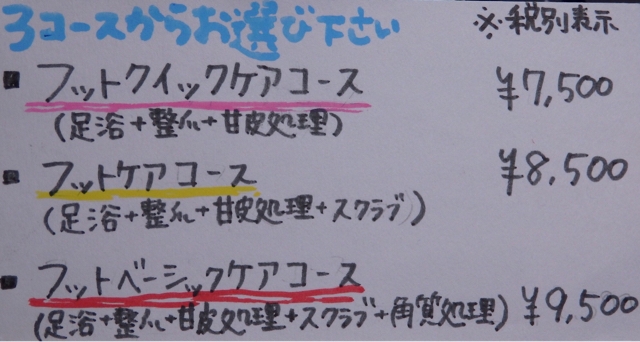 3コースからお選び下さい
※税別表示
■ フットクイックケアコース ¥7,500
(足浴+整爪+甘皮処理)
■ フットケアコース ¥8,500
(足浴+整爪+甘皮処理+スクラブ)
■ フットベーシックケアコース
(足浴+整爪+甘皮処理+スクラブ+角質処理) ¥9,500